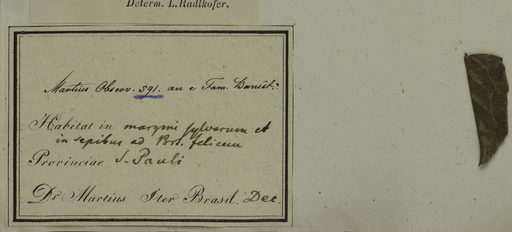 Determ. L. Radlkofer.
Martius Observ. 591. an e Fam. Banist.:
Habitat in margini sylvarum et
in sepibus ad Port. felicem
Provinciae S. Pauli
Dr. Martius Iter Brasil. Dec.